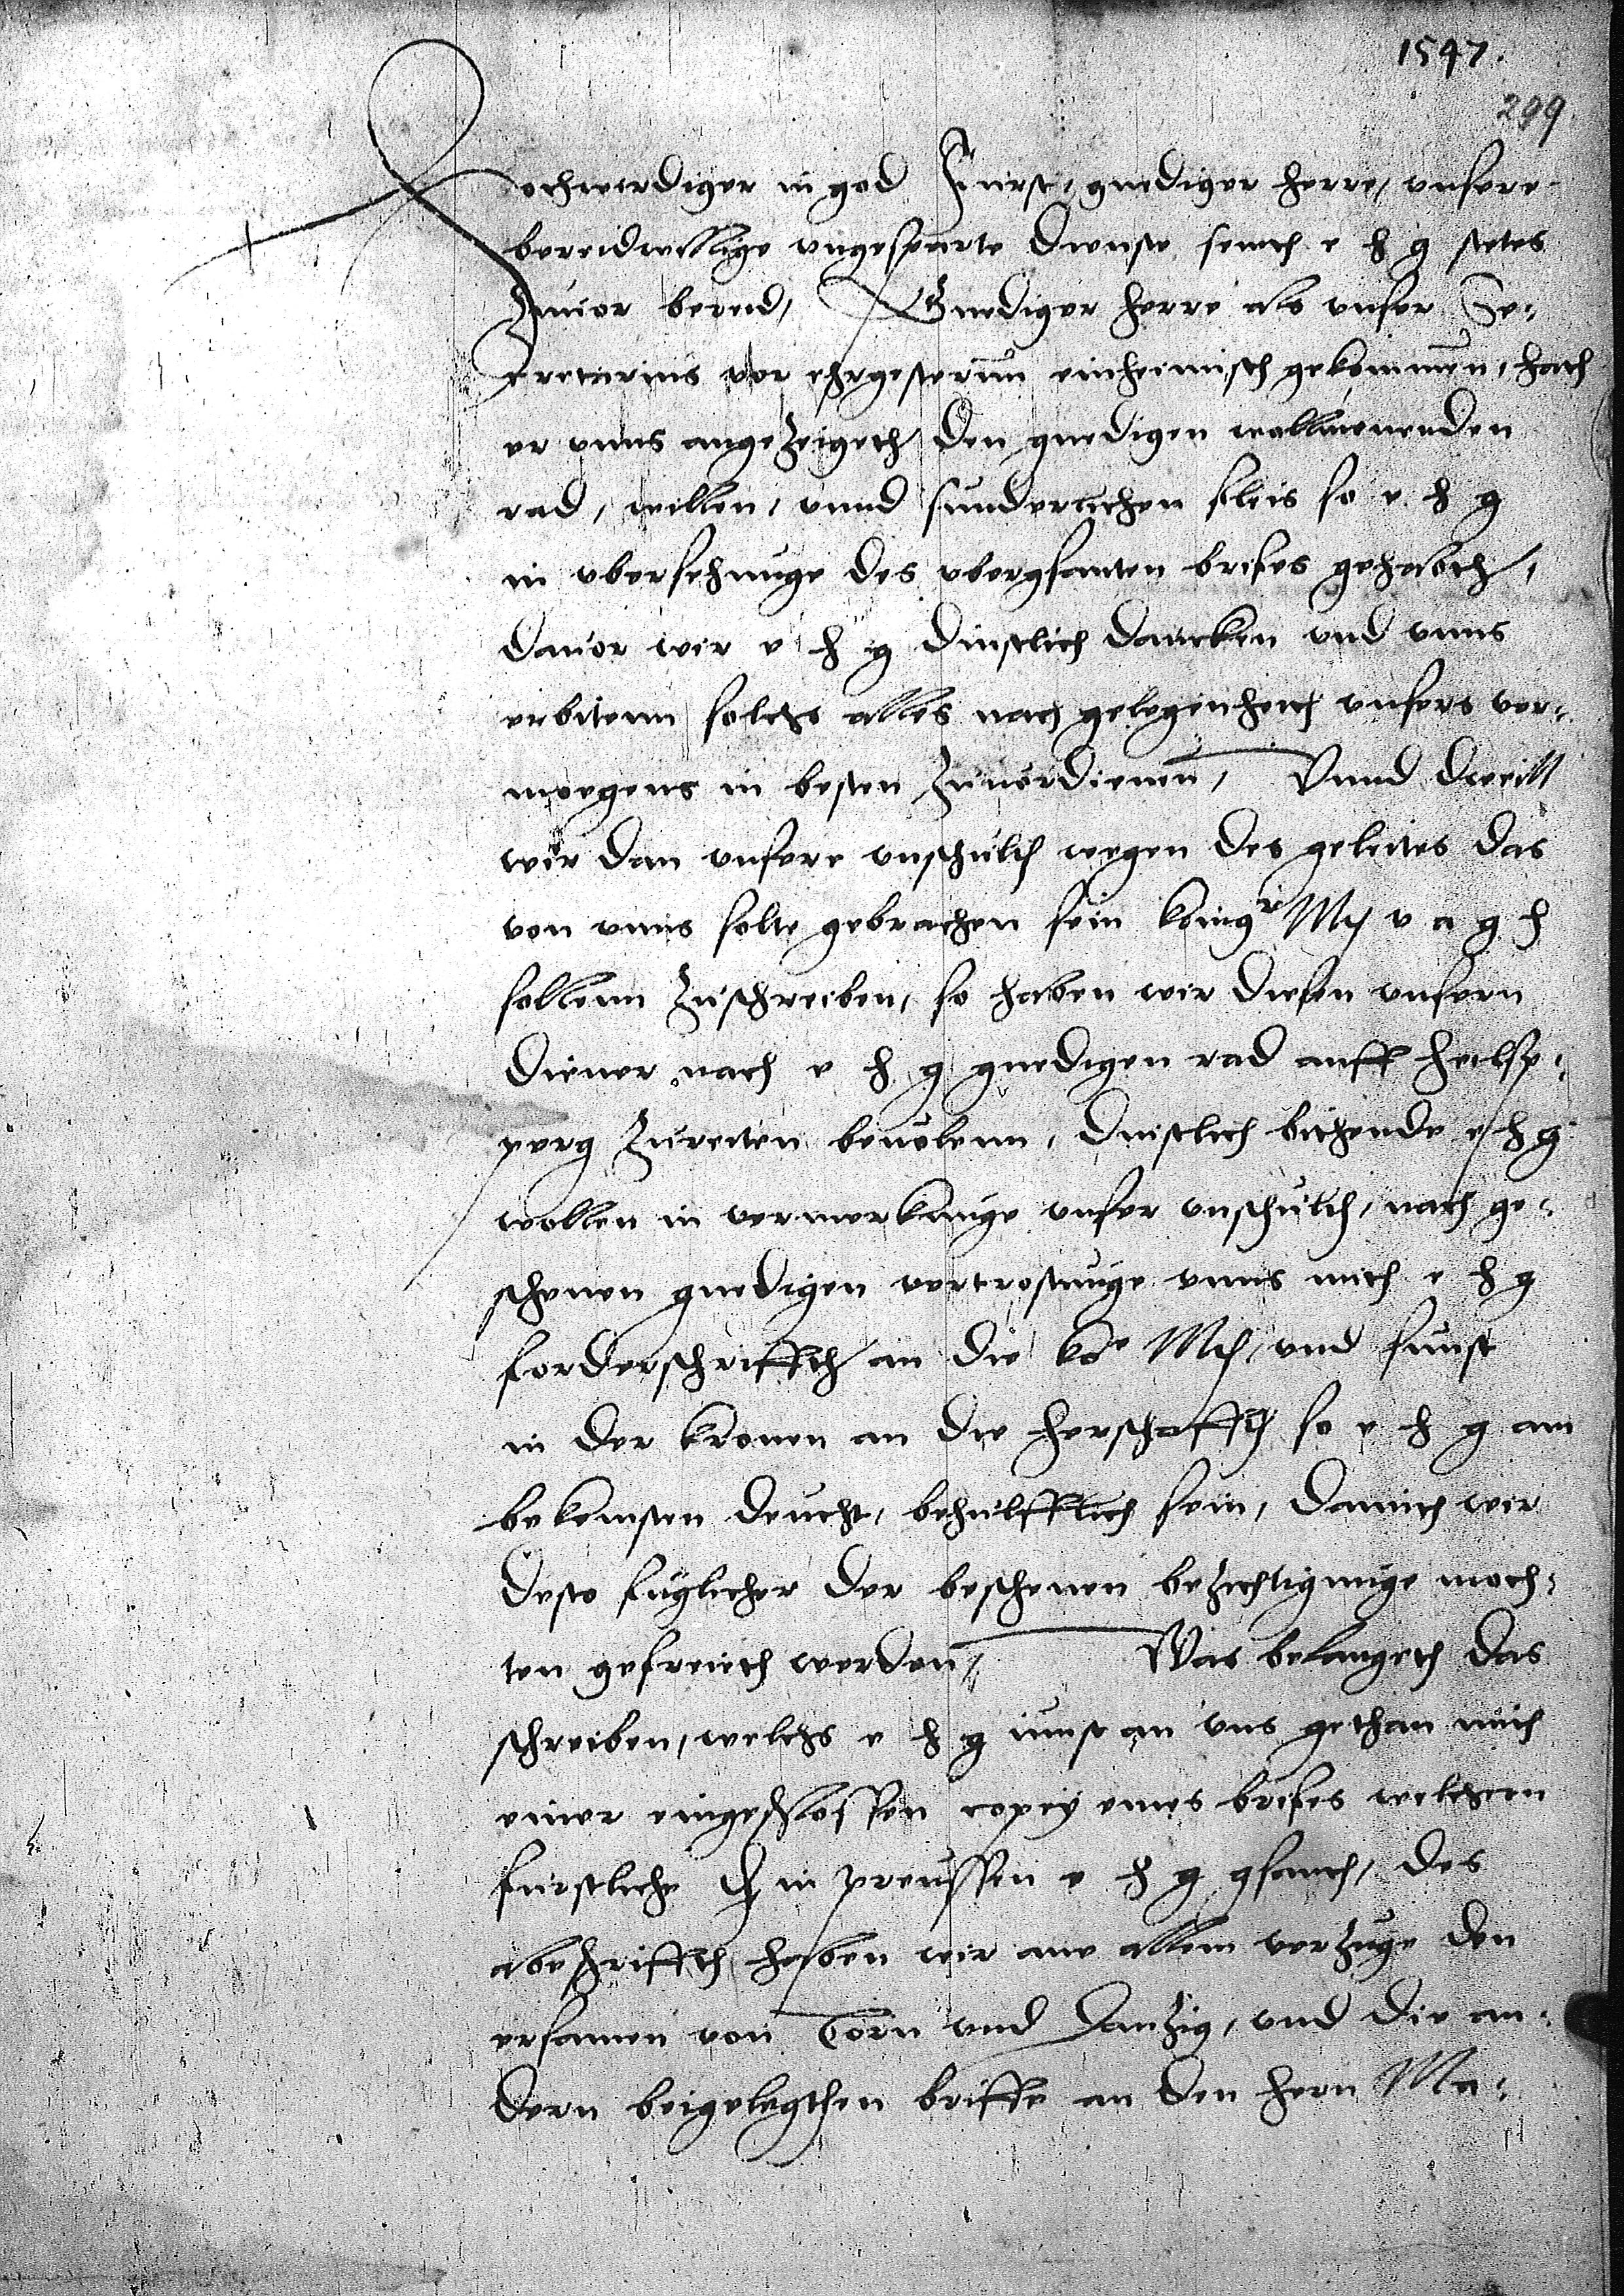 1547.
299.
Hochwirdiger in god Furst, gnediger herre, vnsere
bereidwellige vngesparte dienste seinth e h g stetes
zuuor bereid, Gnediger herre als vnser Se-
cretarius vor ehrgesterun einheimisch gekommen, hath
er vnns angezeigeth den gnedigen wallmenenden
rad, willen, vnnd sunderlichen fleis so e h g
in vbersehnnge des vbergsanten brifes gehabth,
dauor wir e h g dinstlich dancken vnd vnns
erbitenn solchs alles nach gelegenheith vnsers ver-
moegens in besten zuuordienen, Vnnd dweill
wir dan vnsere vnschulth wegen des geleites das
von vnns solte gebrachen sein koingr Mth v a g h
sollenn zuschreiben, so haben wir diesen vnsern
diener nach e h g gnedigen rad auff heilsp-
perg zureiten beuolenn, dinstlich bithende e h g
wollen in vermerkunge vnser vnschulth, nach ge-
schenen gnedigen vertrostunge vnns mith e h g
forderschriffth an die ko Mth, vnd sunst
in der kronen an die herschaffth so e h g am
bekemsten deucht, behulfflich sein, damith wir
deste fuglicher der beschenen bezichtigunge moch-
ten gefreieth werden, Was belangeth das
schreiben, welchs e h g iunst an vns gethan mith
einer eingeschlossen copey eines brifes welchenn
furstliche d in preussen e h g gsanth, des
abeschriffth haben wir ane allenn verzuge den
ersamen von Torn vnd Danzig, vnd die an-
dern beigelegthen briffe an den hern Ma-